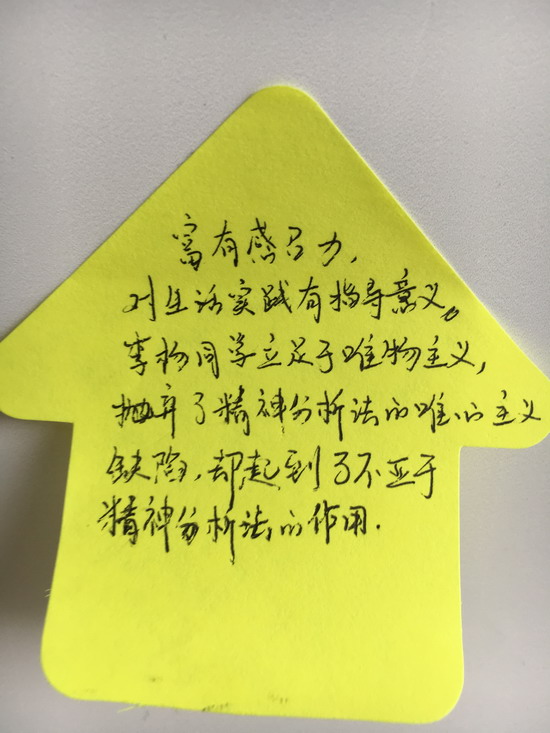 富有感召力，
对生活实践有指导意义。
李杨同学立足于唯物主义，
抛弃了精神分析法的唯心主义
缺陷，却起到了不亚于
精神分析法的作用.